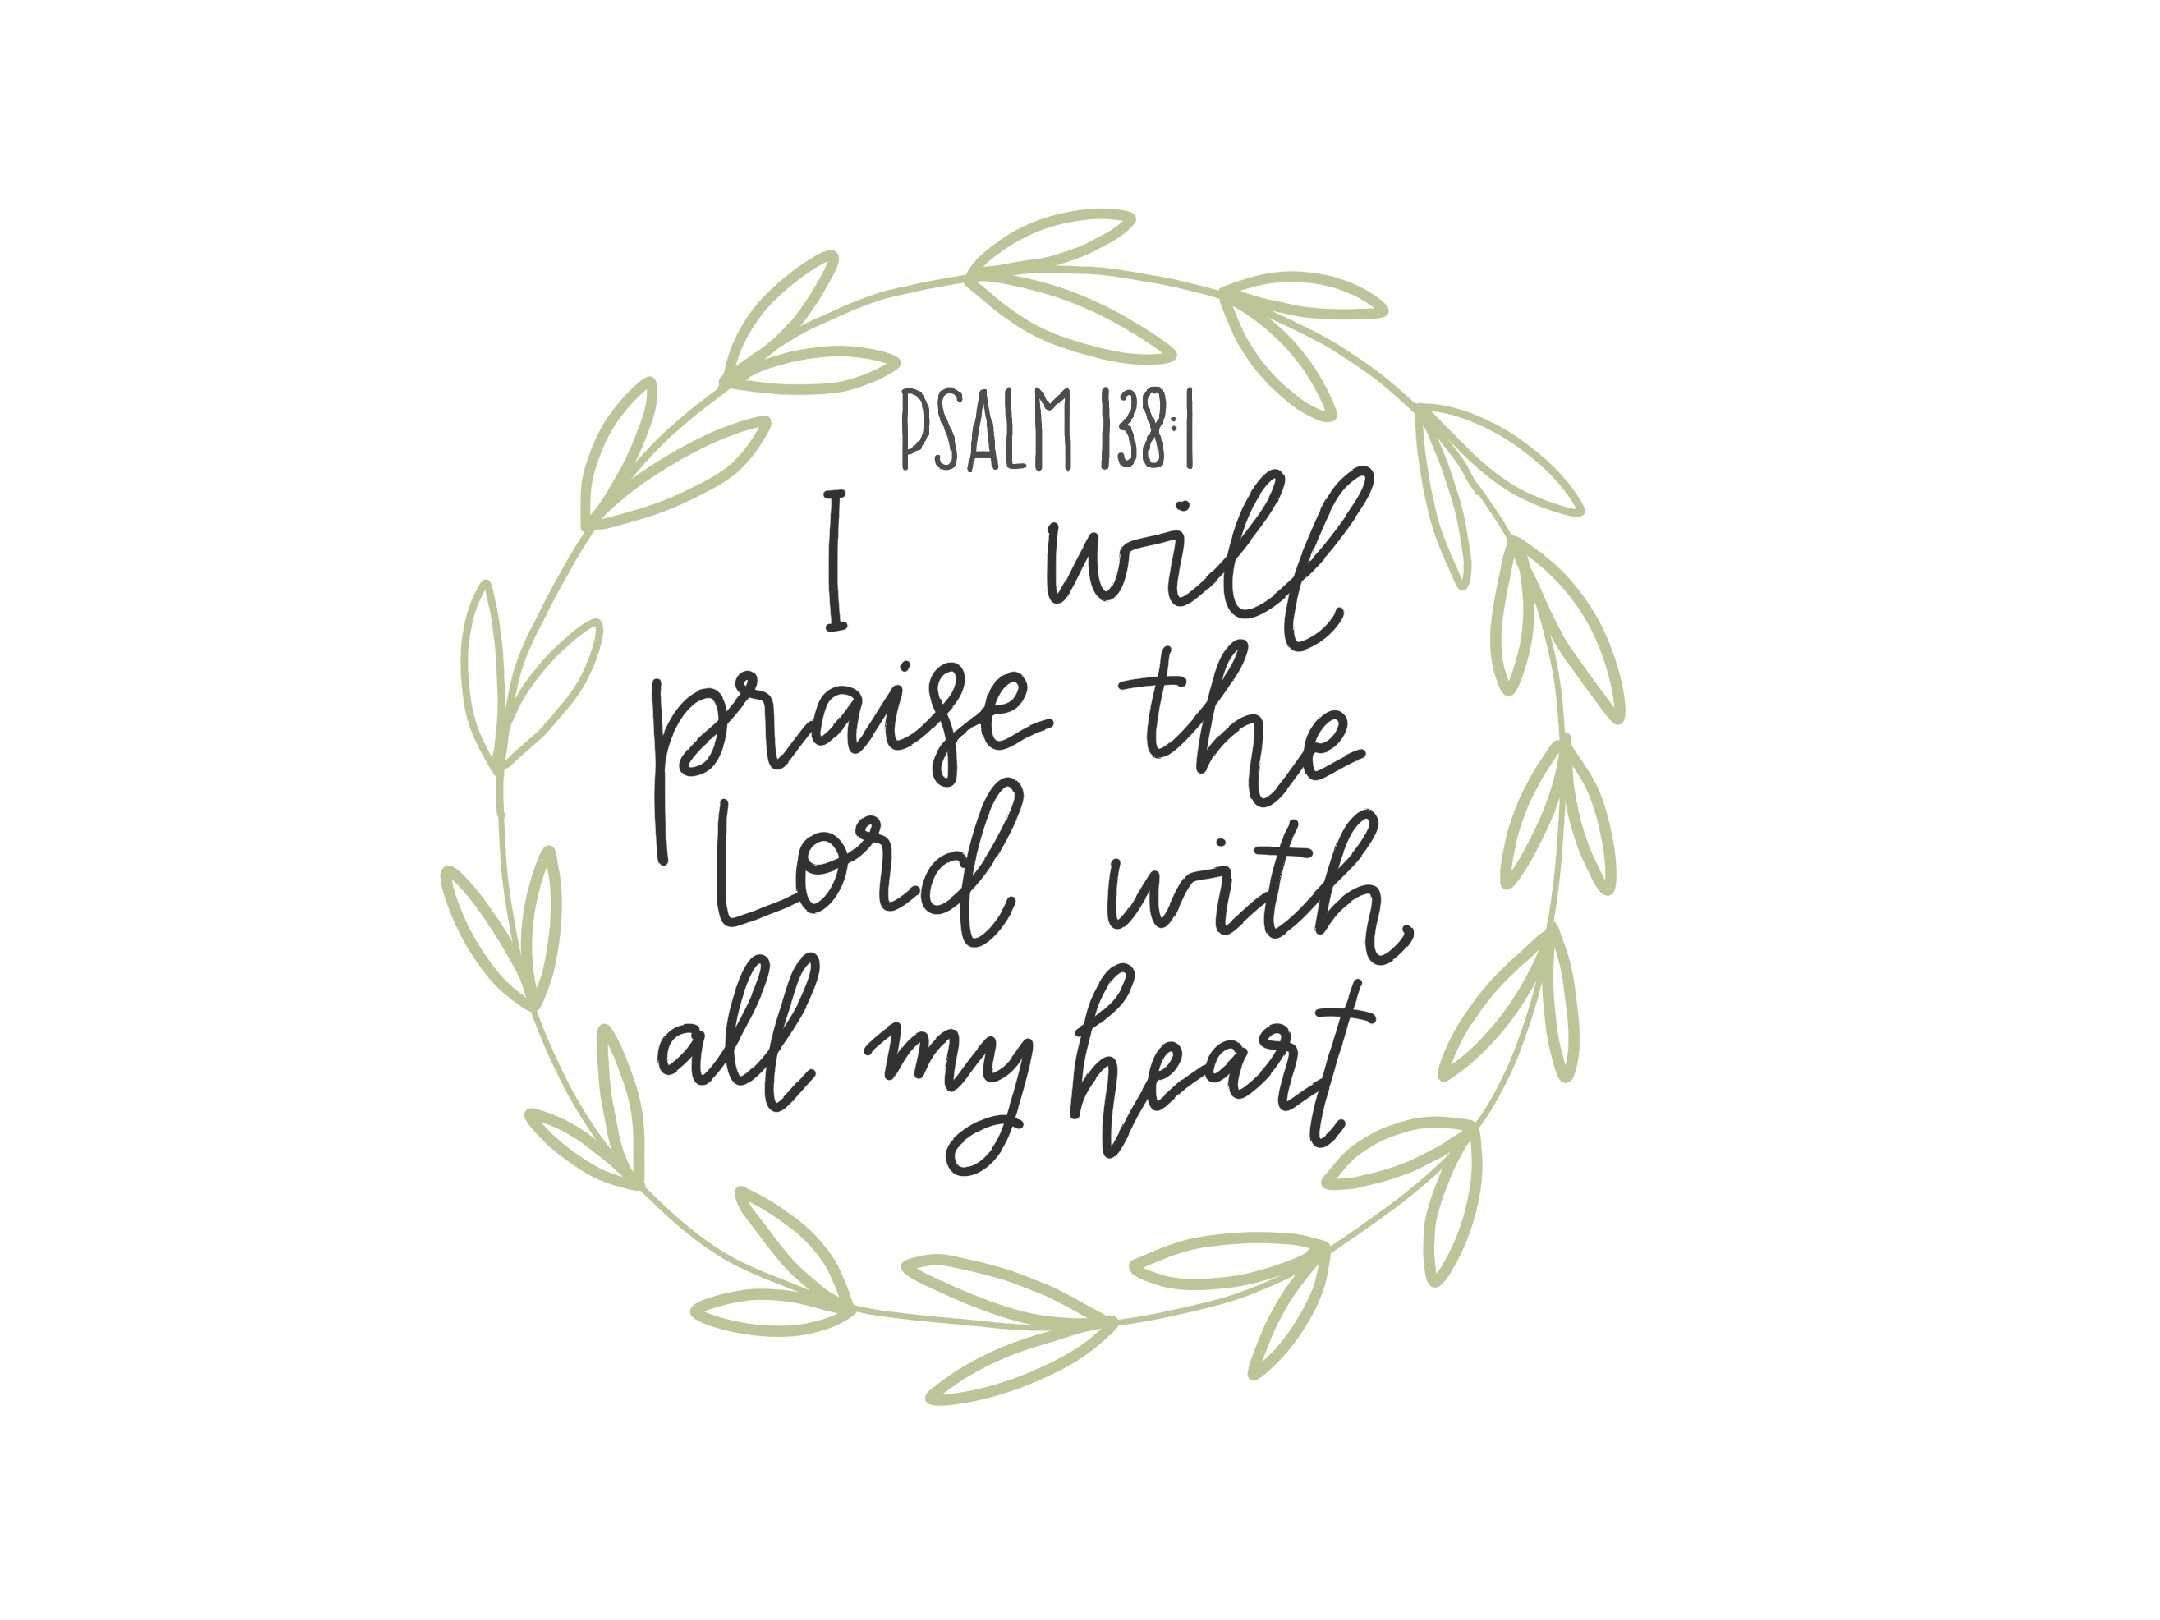 PSALM 138:1
I will
praise the
Lord with
all my heart